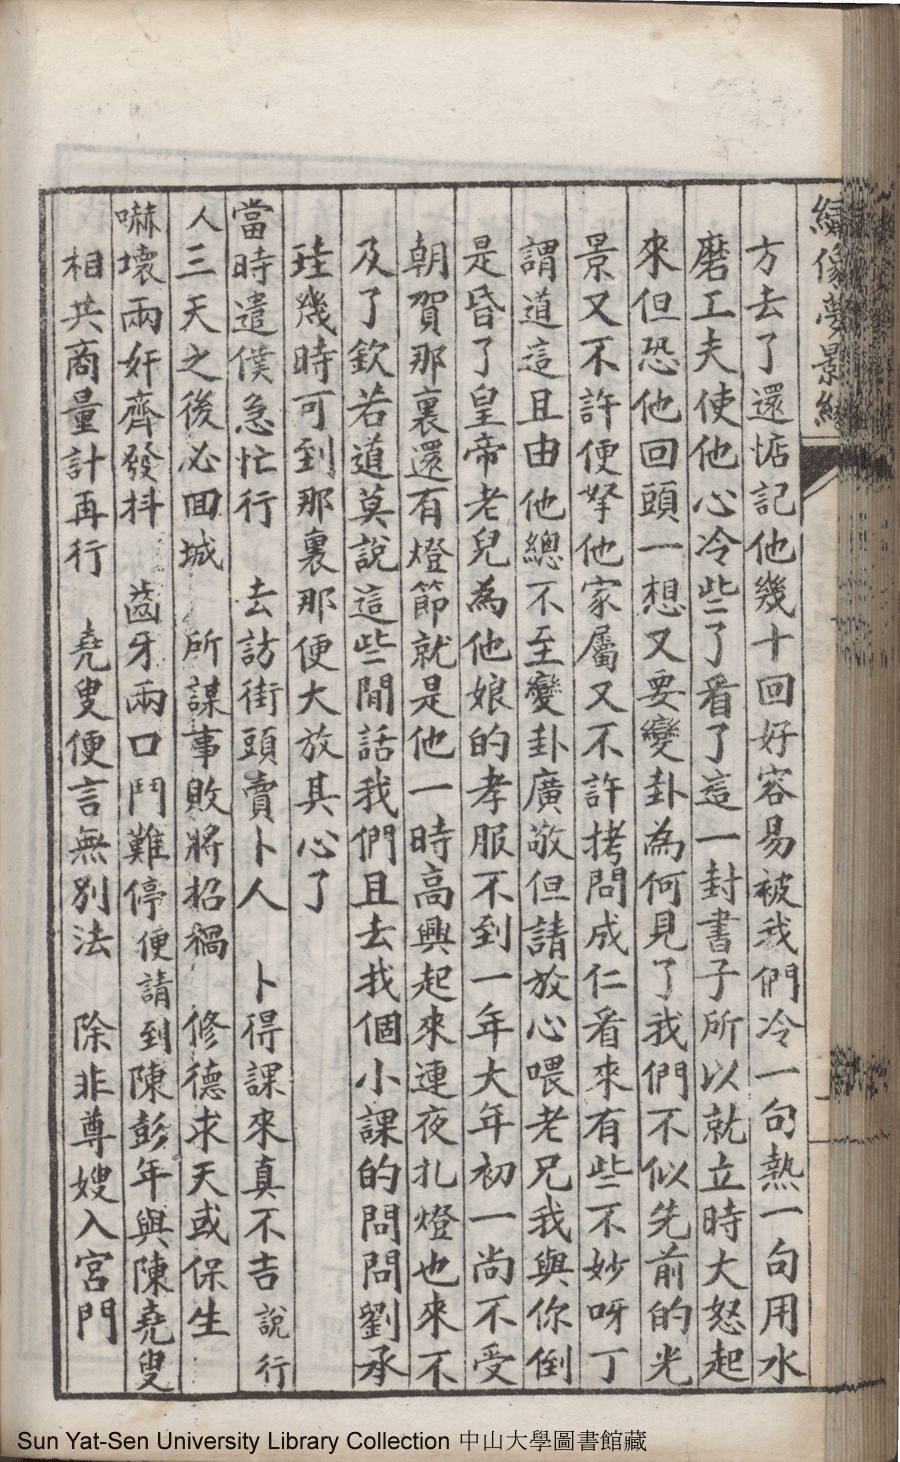 繡像夢影緣
方去了還惦記他幾十回好容易被我們冷一句熱一句用水
磨工夫使他心冷些了看了這一封書子所以就立時大怒起
來但恐他回頭一想又要變卦為何見了我們不似先前的光
景又不許便拏他家屬又不許拷問成仁看來有些不妙呀丁
謂道這且由他總不至變卦廣敬但請放心喂老兄我與你倒
是昏了皇帝老兒為他娘的孝服不到一年大年初一尚不受
朝賀那裏還有燈節就是他一時高興起來連夜扎燈也來不
及了欽若道莫說這些閒話我們且去找個小課的問問劉承
珪幾時可到那裏那便大放其心了
當時遣僕急忙行 去訪街頭賣卜人 卜得課來真不吉說行
人三天之後必回城 所謀事敗將招禍 修德求天或保生
嚇壞兩奸齊發抖 齒牙兩口鬥難停便請到陳彭年與陳堯叟
相共商量計再行 堯叟便言無別法 除非尊嫂入宮門
Sun Yat-Sen University Library Collection 中山大學圖書館藏